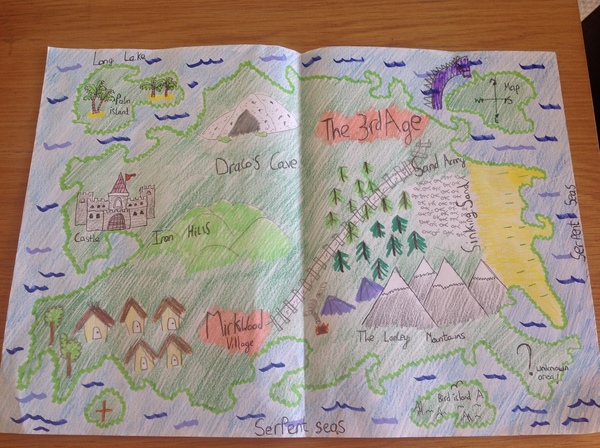 Long Lake
Palm
island
Map
W
S
The 3rd Age
Draco's Cave
Sand Army
Sinking Sand
Serpent Seas
Castle
Iron Hills
Mirkwood
Village
The Lonley Mountains
? unknown
area!!
Bird island
Serpent seas